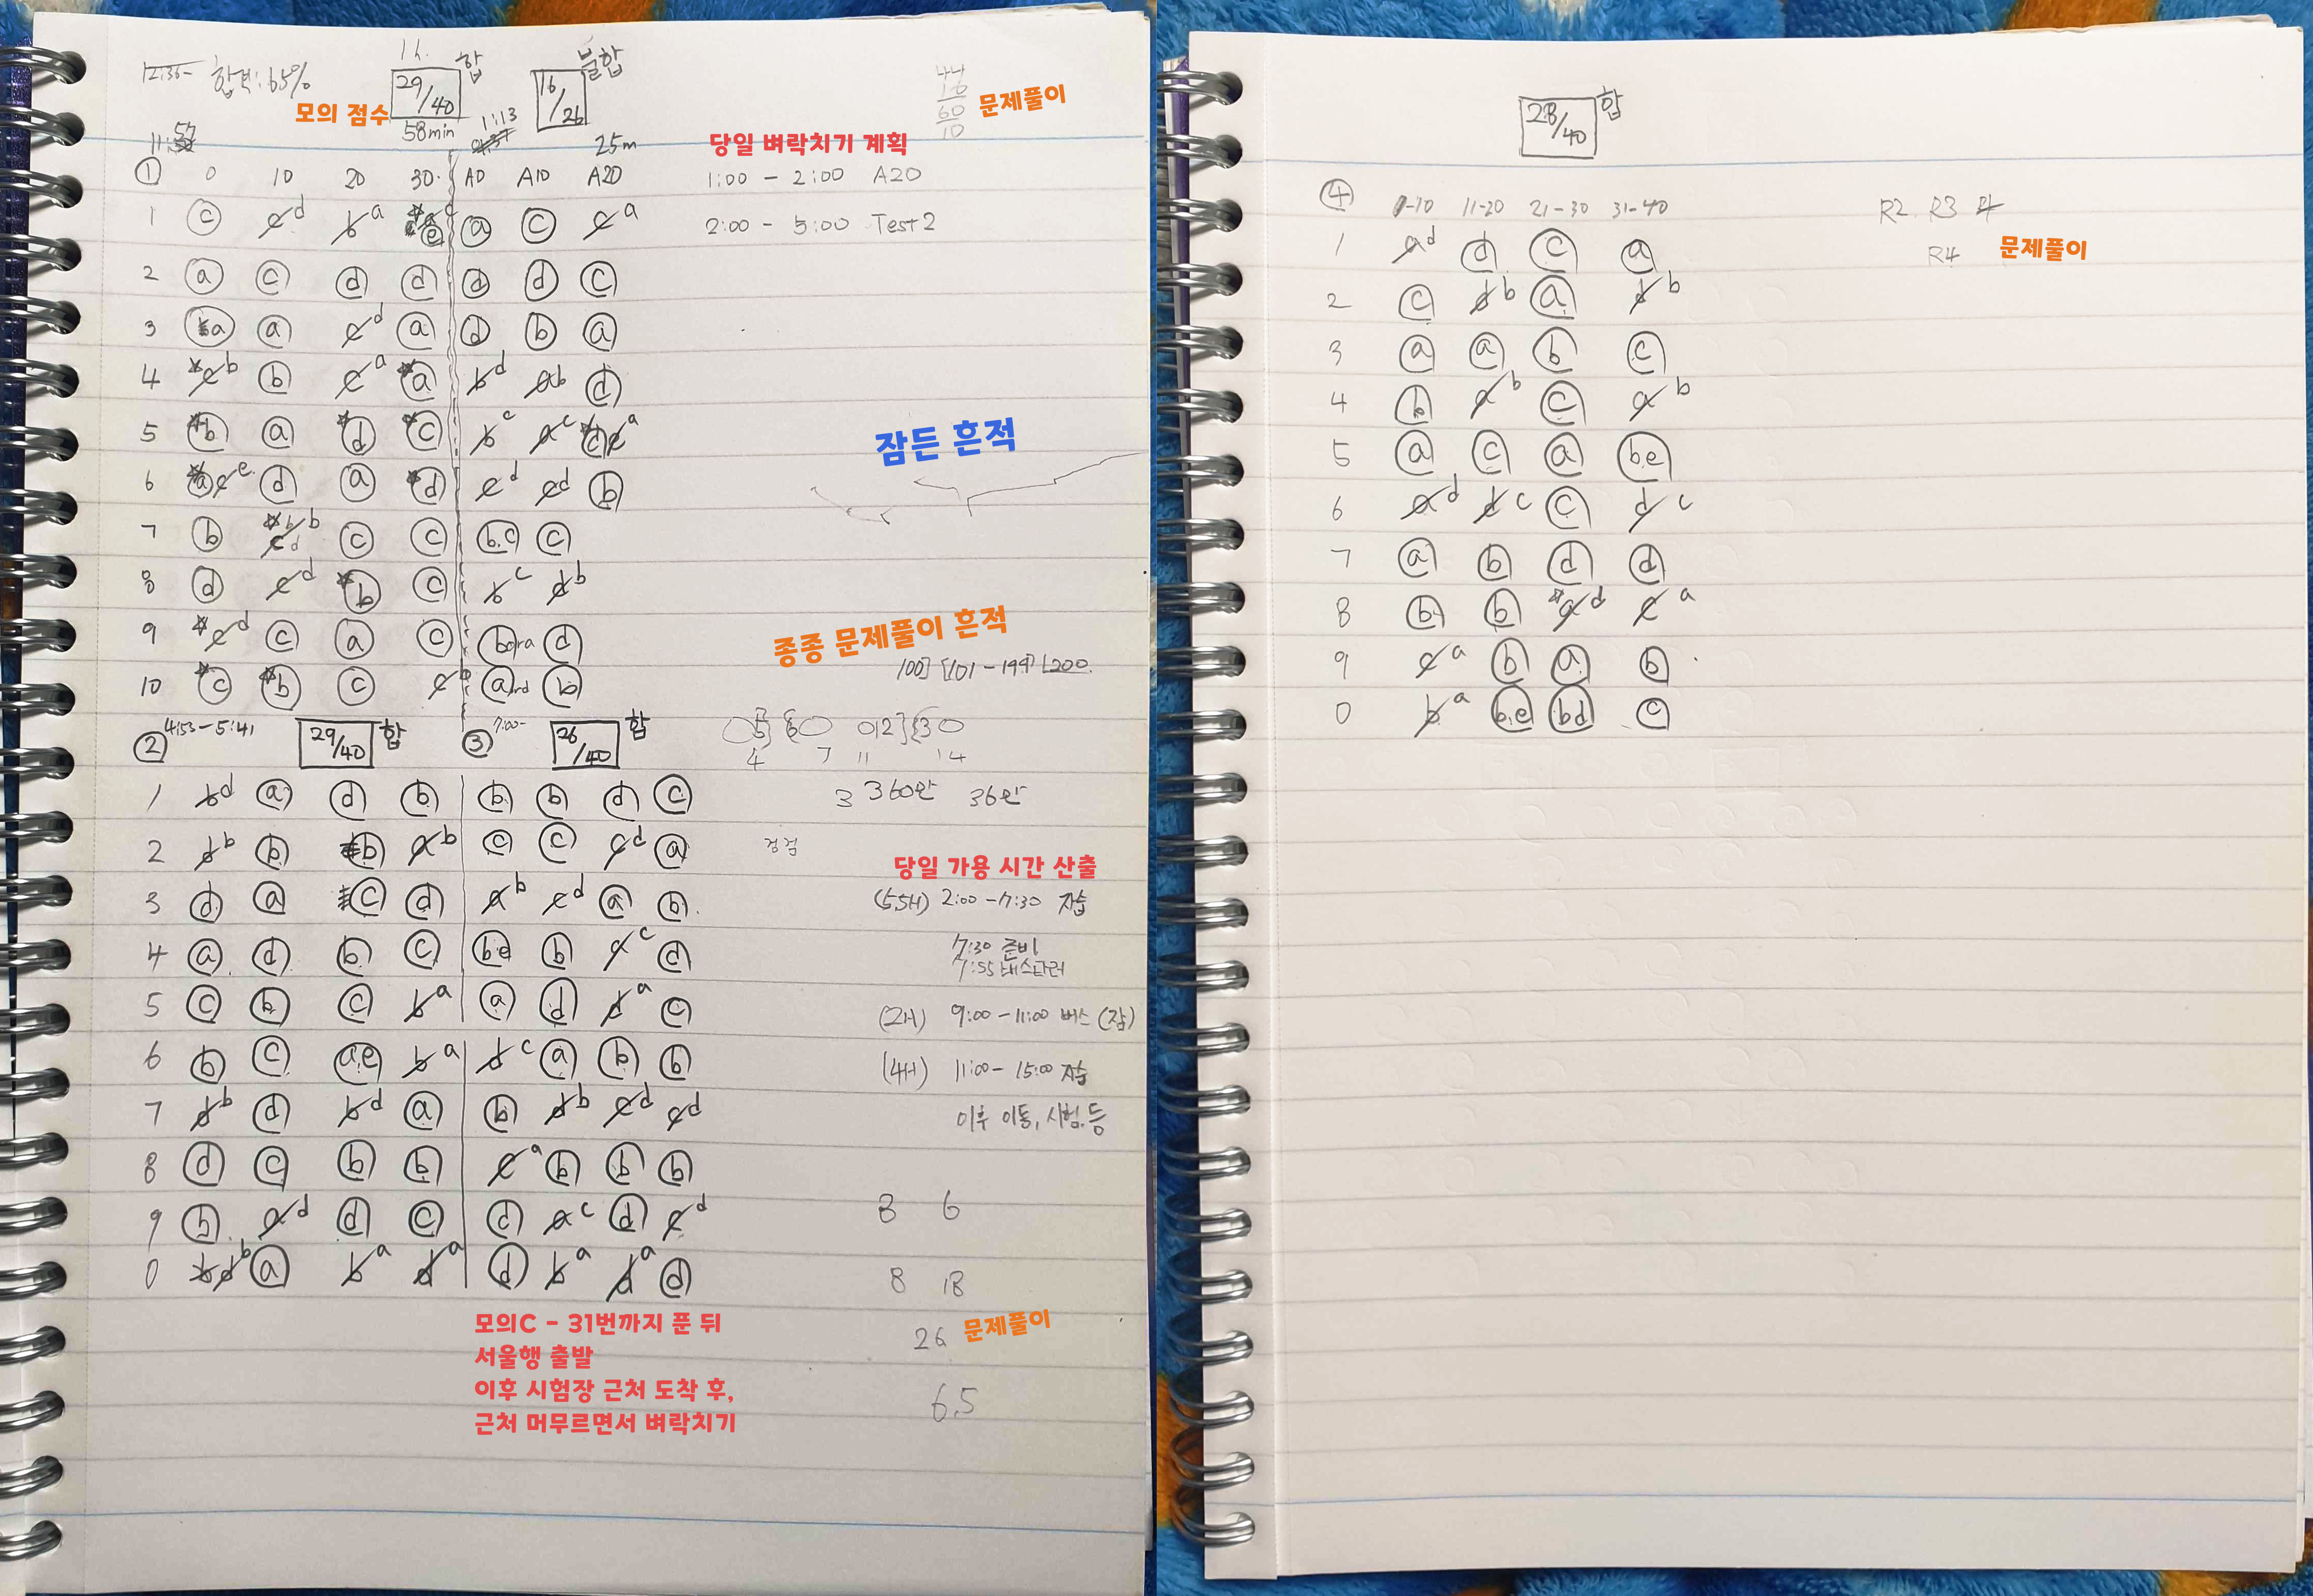 12:35- 합격:65%
1h.
29/40 합
58min
16/26 불합
1:13
25m
모의 점수
문제풀이
60
10
당일 벼락치기 계획
1:00 - 2:00 A20
2:00 - 5:00 Test2
① 0 10 20 30 A0 A10 A20
1 c c d b a e a c c a
2 a c d d d d c
3 a a c d a d b a
4 c b b c a a b d a b d
5 b a d c b c a c d c a
6 a c e d a d c d c d b
7 b b b c d c c b.c c
8 d c d b c b c d b
9 c d c a c b or a d
10 c b c c b a nd b
잠든 흔적
종종 문제풀이 흔적
100] [101-199] [200
3 360만 36만
검정
당일 가용 시간 산출
(5.5H) 2:00 - 7:30 자습
7:30 준비
(2H) 9:00 - 11:00 버스 (잠)
(4H) 11:00 - 15:00 자습
이후 이동, 시험 등
8 6
8 18
26 문제풀이
6.5
② 4:53 - 5:41 29/40 합
③ 7:00- 26/40 합
1 b d a d b b b d c
2 d b b b a b c c c d a
3 d a c d a b c d a b
4 a d b c b.e b a c d
5 c b c b a a d d a c
6 b c a.e b a d c a b b
7 d b d b d a b d b c d c d
8 d c b b c a b b b
9 b a d d c d a c d c d
0 d b a b a d a d b a d a d
모의C - 31번까지 푼 뒤
서울행 출발
이후 시험장 근처 도착 후,
근처 머무르면서 벼락치기
28/40 합
④ 1-10 11-20 21-30 31-40
R2 R3 4
R4 문제풀이
1 a d d c a
2 c d b a d b
3 a a b c
4 b a b c a b
5 a c a b.e
6 a d d c c d c
7 a b d d
8 b b a d c a
9 c a b a b
0 b a b.e b.d c